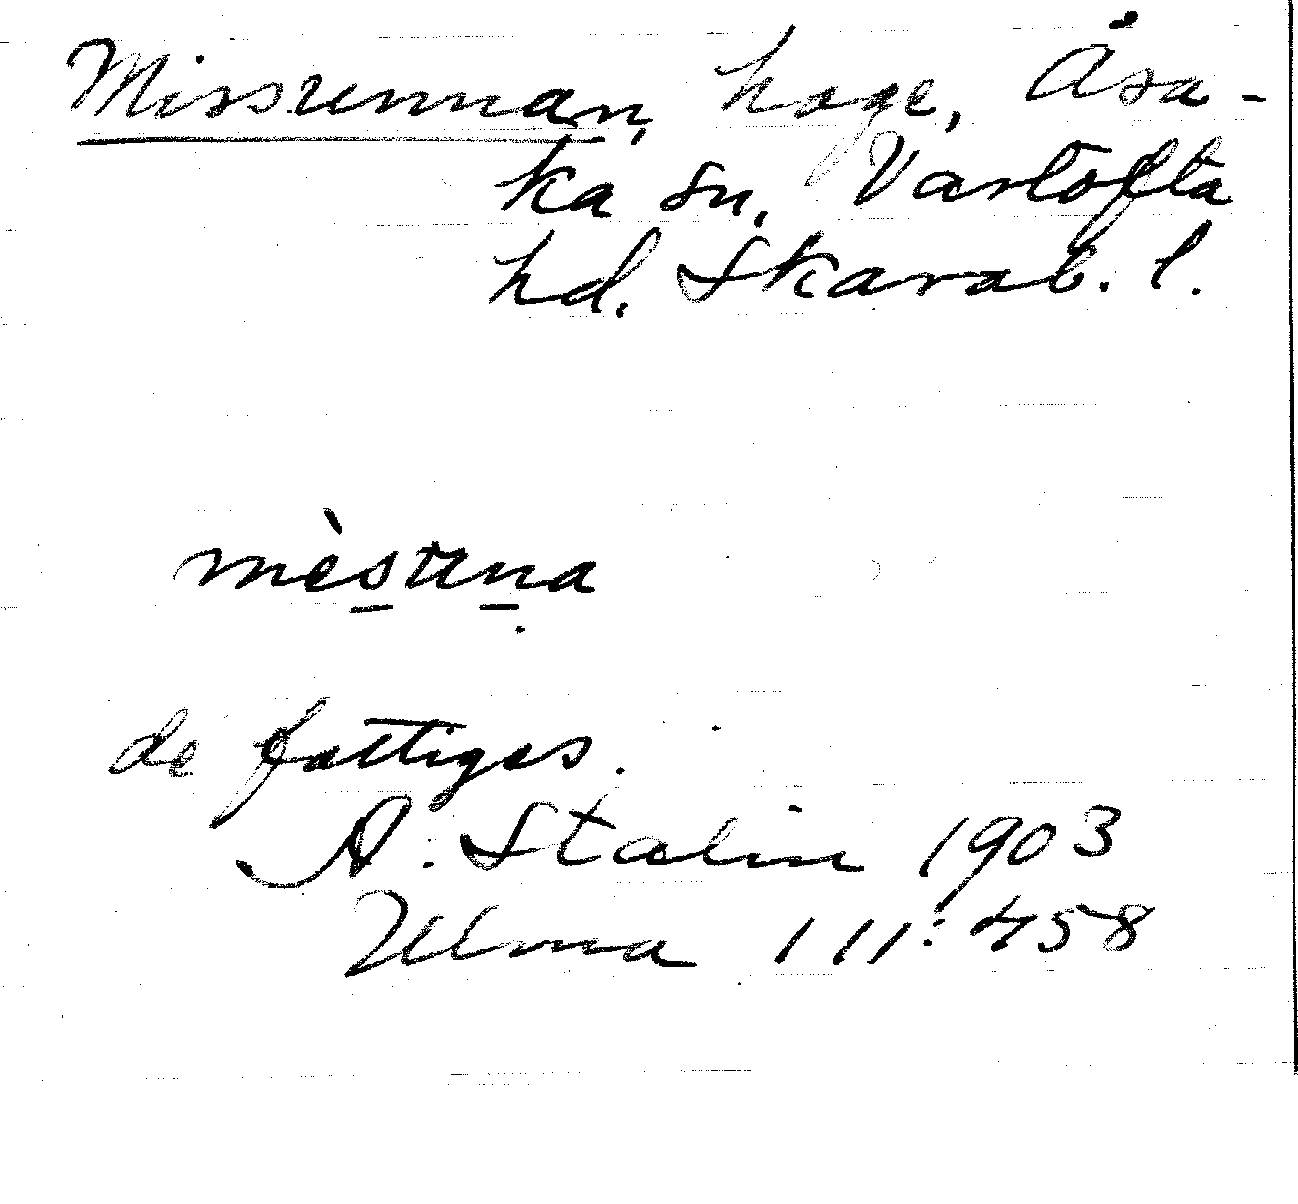 Missrennan, hage, Åsa-
ka sn, Vartofta
hd. Skarab. l.
mèsrena
de fattiges.
A. Stalin 1903
Ulma 111:458